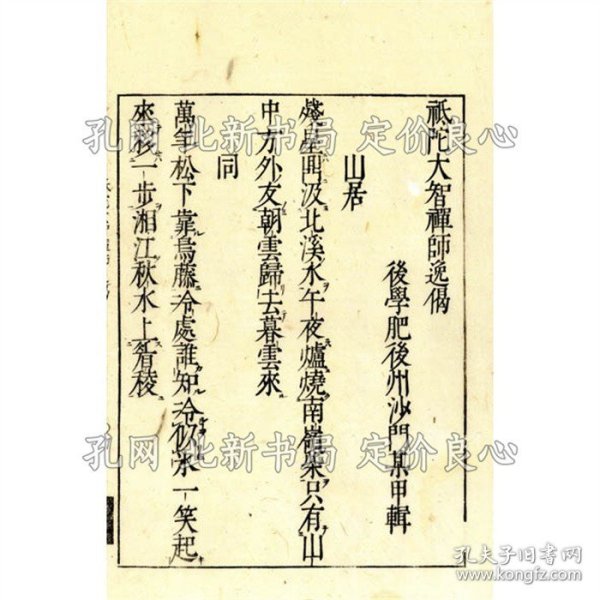 祗陀大智禪師逸偈
後學肥後州沙門某甲輯
山居
殘星間汲北溪水午夜爐燒南嶽柴只有山
中方外友朝雲歸去暮雲來
同
萬年松下靠烏藤冷處誰知冷似氷一笑起
來移一步湘江秋水上𬒮稜
孔网 北新书局 定价良心
孔网 北新书局 定价良心
孔网 北新书局 定价良心
孔夫子旧书网
www.kongfz.com